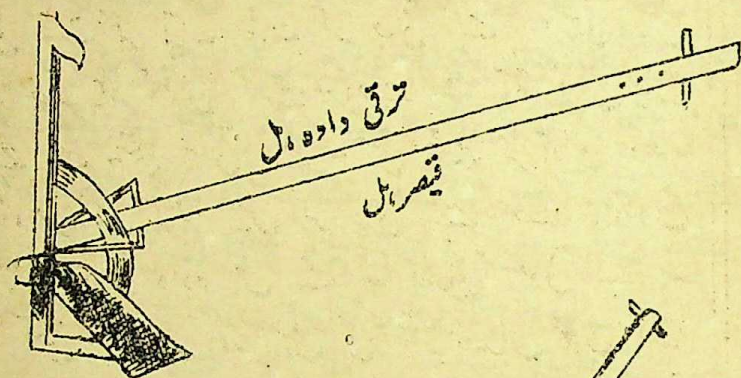 ترقی دادہ ہل
قیصر ہل